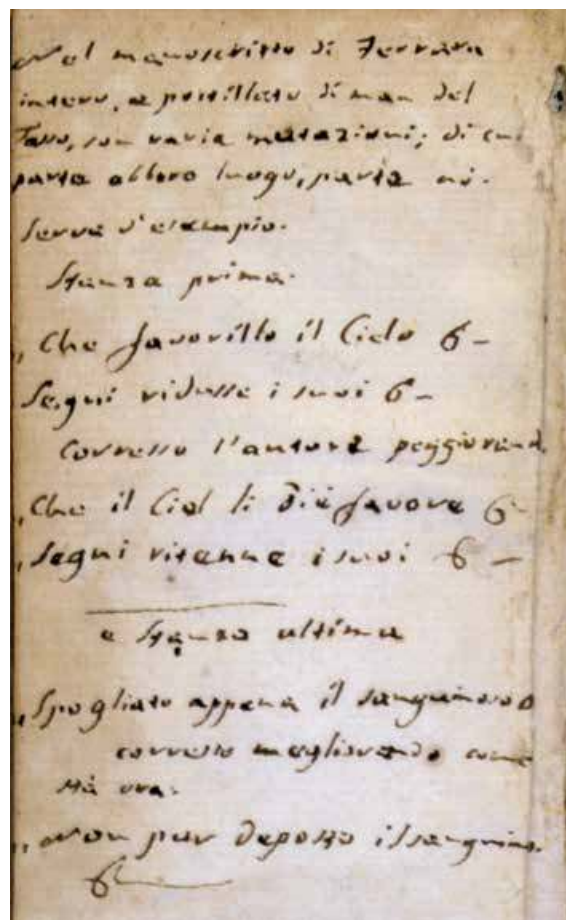 Nel manoscritto di Ferrara
intero, e postillato di man del
Tasso, son varie mutazioni; di cui
parte ebbero luogo, parte no.
Serva d'esempio.
Stanza prima.
„ Che favorillo il Cielo &—
Segni ridusse i suoi &—
corresse l'autore peggiorand.
„ Che il Ciel li diè favore &—
„ Segni ritenne i suoi &—
e Stanza ultima
„ Spogliato appena il sanguinoso &
corresse megliorando come
stà ora.
„ Non pur deposto il sanguino.
&—